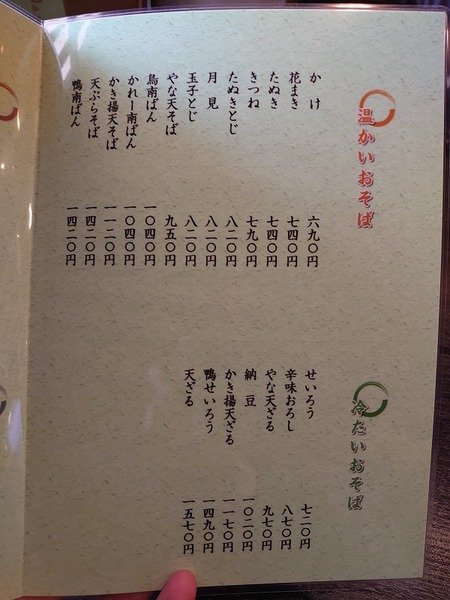 温かいおそば
かけ 六九〇円
花まき 七四〇円
たぬき 七四〇円
きつね 七九〇円
たぬきとじ 八二〇円
月見 八二〇円
玉子とじ 八二〇円
やな天そば 九五〇円
鳥南ばん 一〇四〇円
かれー南ばん 一〇四〇円
かき揚天そば 一一二〇円
天ぷらそば 一四二〇円
鴨南ばん 一四二〇円
冷たいおそば
せいろう 七二〇円
辛味おろし 八七〇円
やな天ざる 九七〇円
納豆 一〇二〇円
かき揚天ざる 一一七〇円
鴨せいろう 一四九〇円
天ざる 一五七〇円